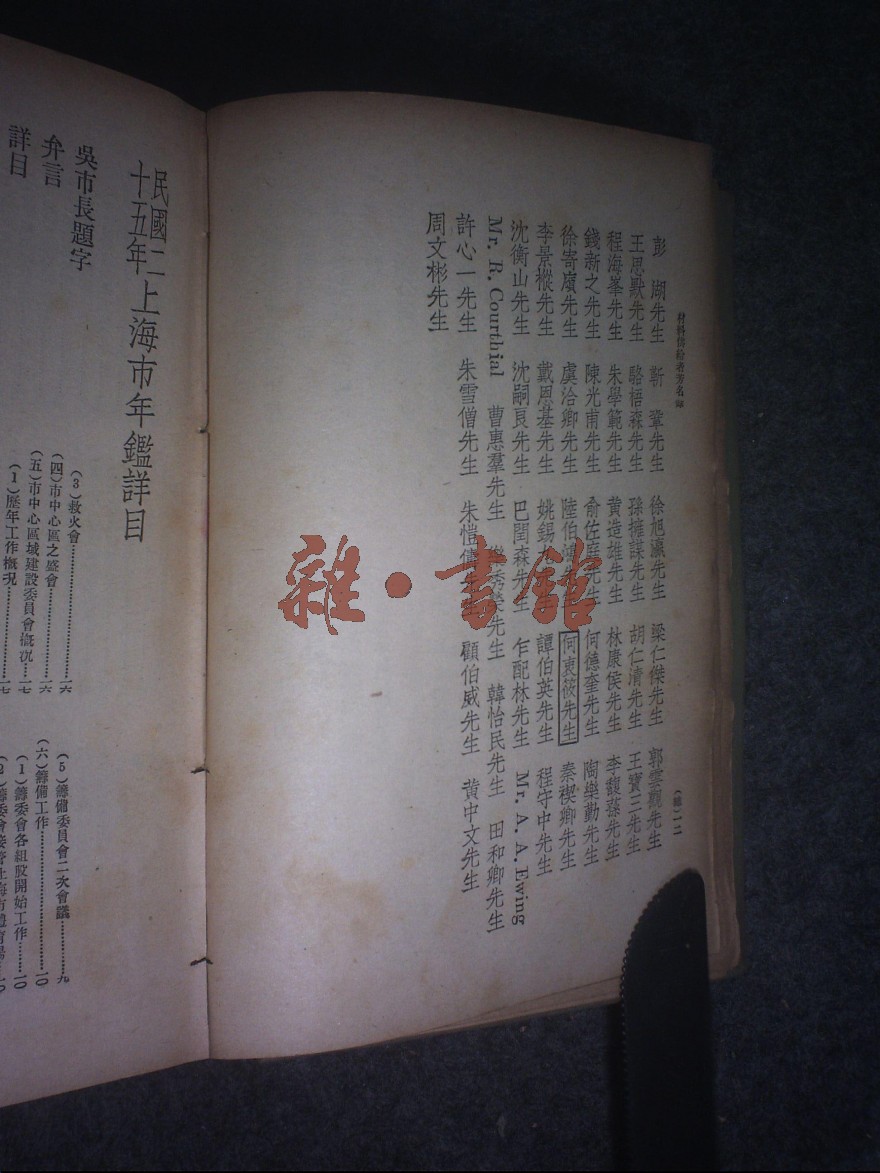 材料供給者芳名
彭湖先生 靳鞏先生 徐旭瀛先生 梁仁傑先生 郭雲觀先生
王思默先生 駱梧森先生 孫擁謀先生 胡仁清先生 王寶三先生
程海峯先生 朱學範先生 黃造雄先生 林康侯先生 李馥蓀先生
錢新之先生 陳光甫先生 俞佐庭先生 何德奎先生 陶樂勤先生
徐寄廎先生 虞洽卿先生 陸伯 何東筱先生 秦禊卿先生
李景樅先生 戴恩基先生 姚錫 譚伯英先生 程守中先生
沈衡山先生 沈嗣良先生 巴閏森先生 乍配林先生 Mr. A. A. Ewing
Mr. R. Courthial 曹惠羣先生 先生 韓怡民先生 田和卿先生
許心一先生 朱雪僧先生 朱愷儔 顧伯威先生 黄中文先生
周文彬先生
民國二十五年上海市年鑑詳目
吳市長題字
弁言
詳目
(3)救火會……一六
(四)市中心區之盛會……一六
(五)市中心區域建設委員會概況……一七
(1)歷年工作概況……一七
(5)籌備委員會二次會議……九
(六)籌備工作……一〇
(1)籌委會各組股開始工作……一〇
(2)籌委會接管上海市體育場……一〇
雜·書館